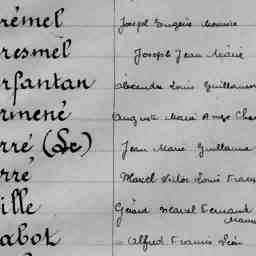 rémel Joseph Eugène Maurice
resmel Joseph Jean Marie
rfantan Alexandre Louis Guillaume
rmené Auguste Marie Ange Cha
rré (Le) Jean Marie Guillaume
rré Marcel Victor Louis Fran
ille Gérard Marcel Fernand
abot Alfred Francis Léon